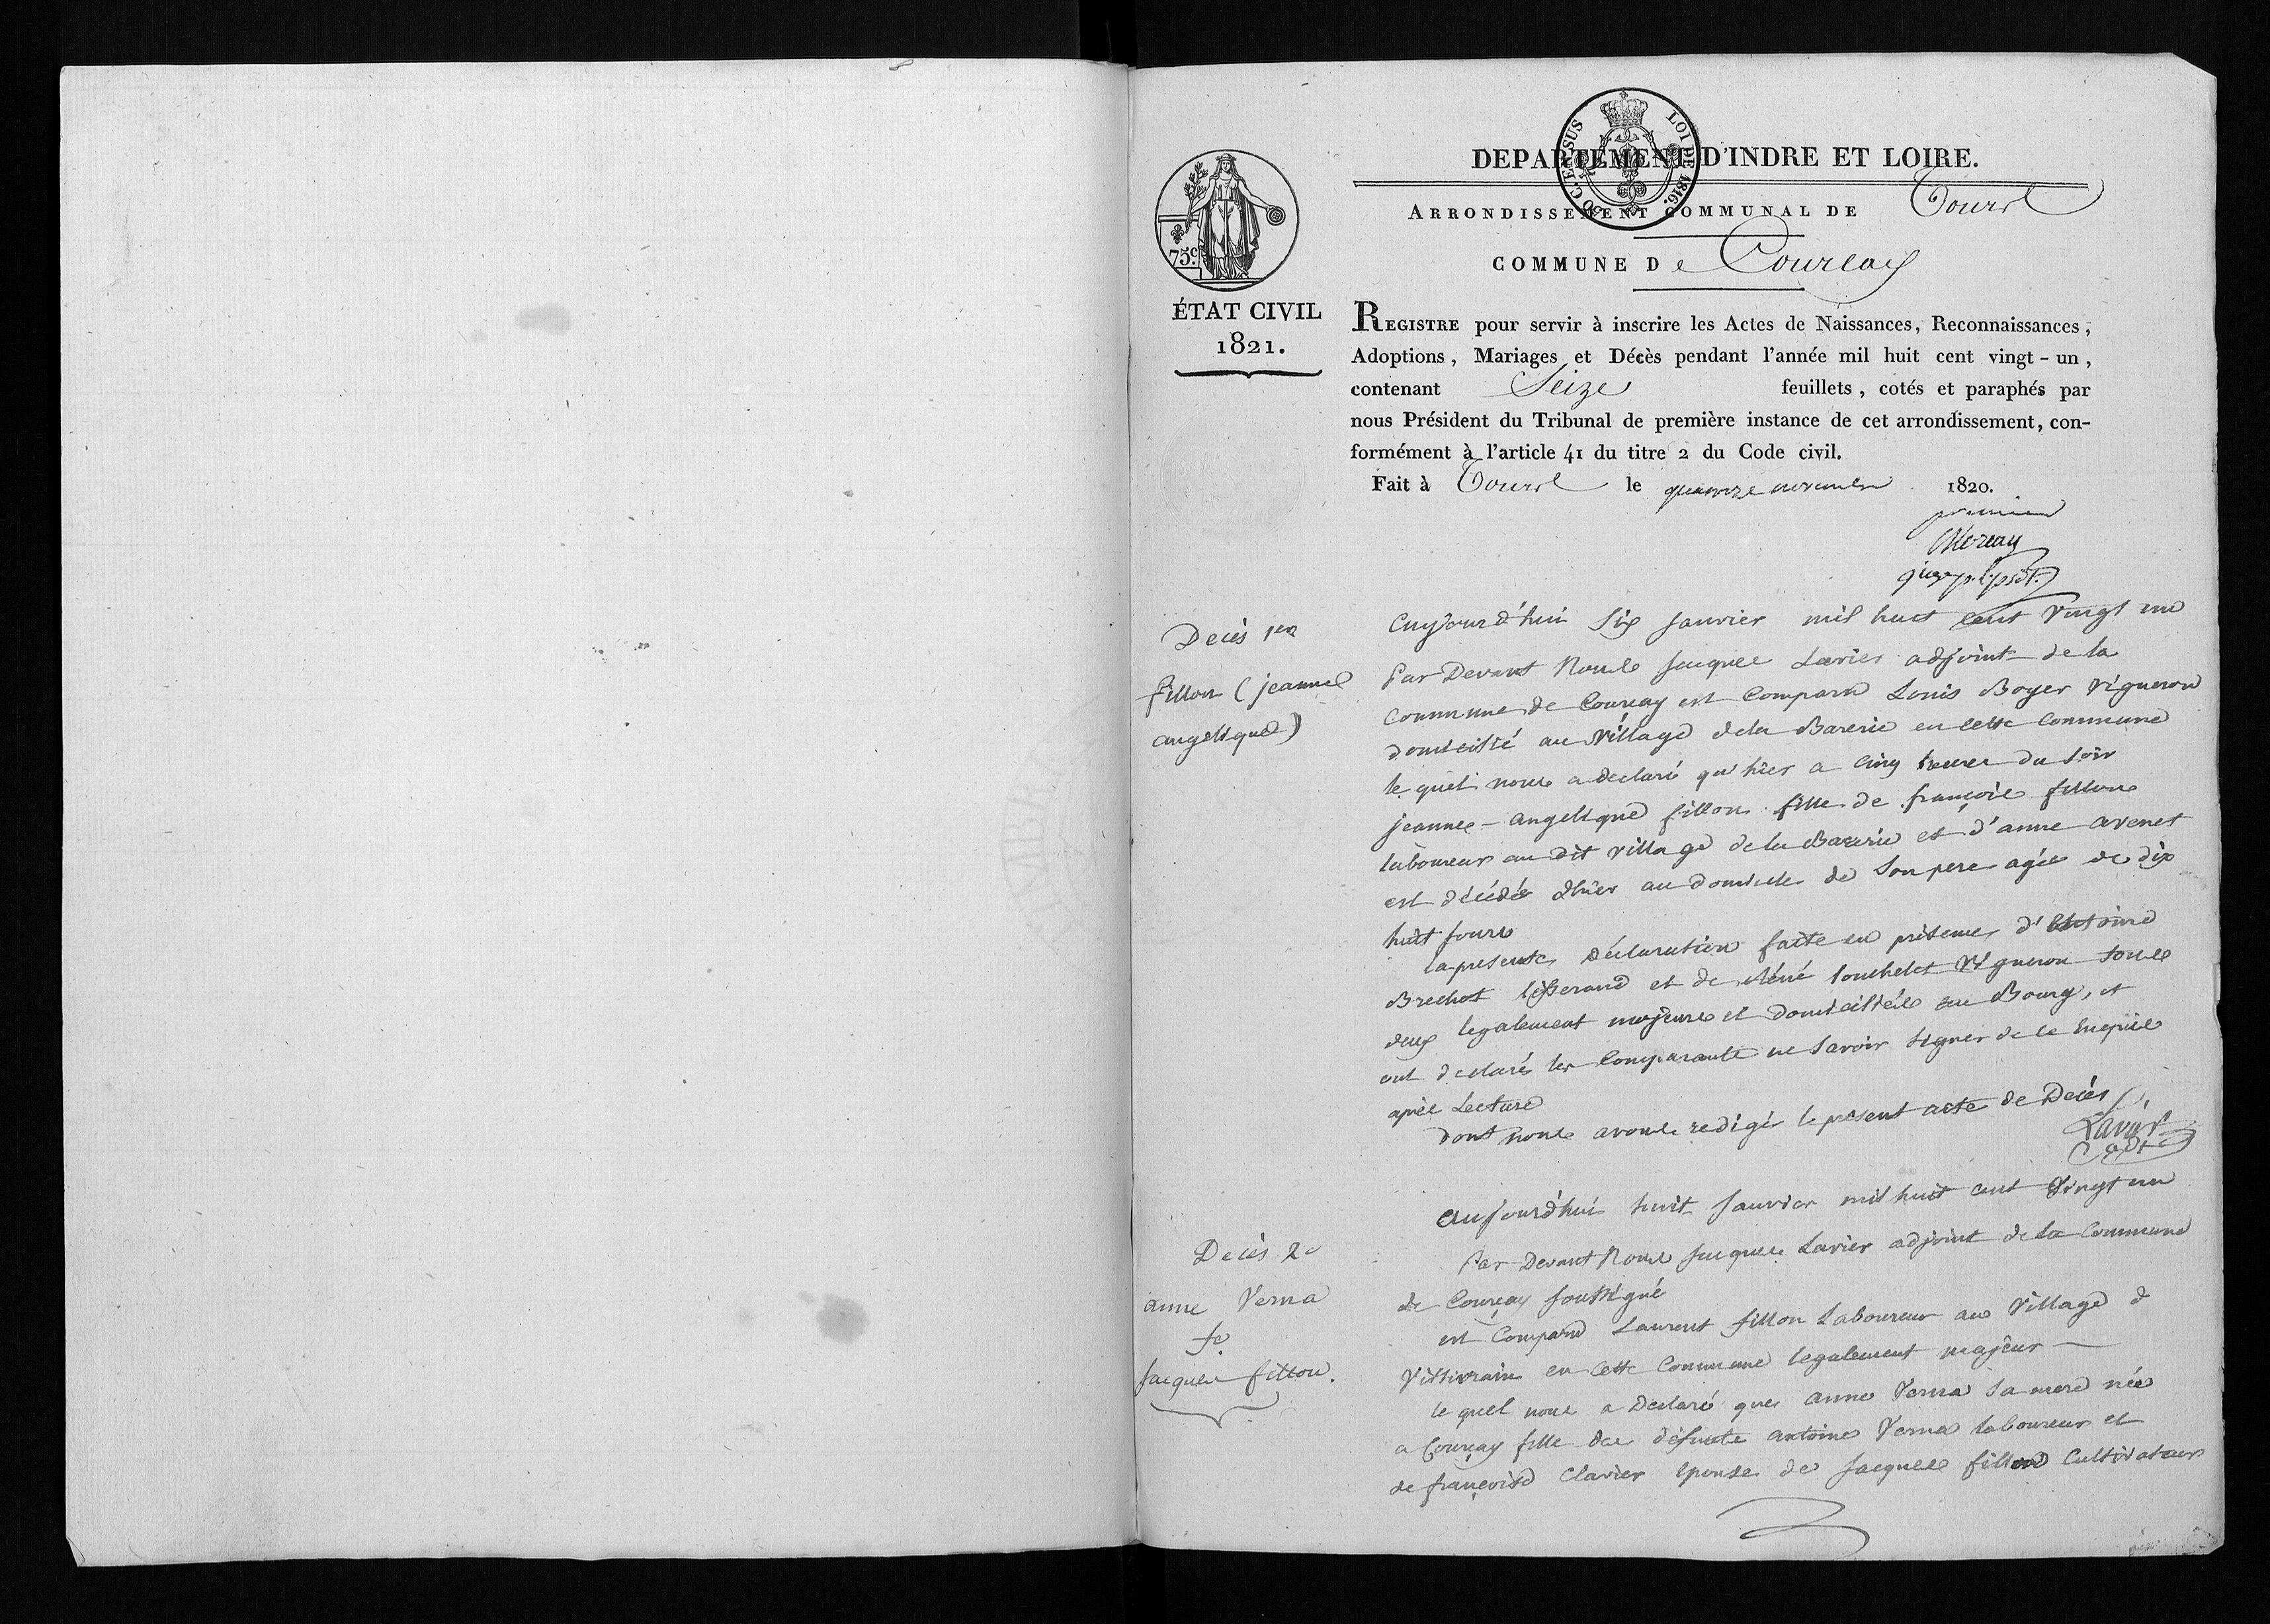 DEPARTEMENT D'INDRE ET LOIRE.
LOI DE 1816.
50 C. EN SUS
ARRONDISSEMENT COMMUNAL DE Tours
COMMUNE De Courcay
75c.
ÉTAT CIVIL
1821.
REGISTRE pour servir à inscrire les Actes de Naissances, Reconnaissances,
Adoptions, Mariages et Décès pendant l'année mil huit cent vingt-un,
contenant Seize feuillets, cotés et paraphés par
nous Président du Tribunal de première instance de cet arrondissement, con-
formément à l'article 41 du titre 2 du Code civil.
Fait à Tours le quatorze novembre 1820.
premier
Moreau
juge pr. l. psdt.
Decès 1er
fillon (jeanne
angelique)
Aujourd'hui six janvier mil huit cent vingt un
Par Devant Nous jacques Lavier adjoint de la
commune de Courçay est comparu Louis Boyer vigneron
domicilié au village dela Barerie en cette commune
le quel nous a declaré qu'hier a cinq heures du soir
jeanne-angelique fillon fille de françois fillon
laboureur au dit village de la Barerie et d'anne avenet
est décédée d'hier au domicile de son pere agée de dix
huit jours
la presente déclaration faite en présence d'Antoine
Brechot tisserand et de réné touchelet vigneron tous
deux legalement majeurs et domiciliés au Bourg, et
ont declarés les comparants ne savoir signer de ce enquis
après Lecture
dont nous avons redigé le présent acte de Decès
Lavier
adt
Decès 2e
anne Verna
fe
jacques fillon.
aujourd'hui huit janvier mil huit cent vingt un
Par Devant Nous jacques Lavier adjoint de la commune
de Courçay soussigné
est comparu Laurent fillon Laboureur au village d
Vitivrain en cette commune legalement majeur
le quel nous a declaré que anne Verna sa mere née
a Courçay fille de defunte antoine Verna laboureur et
de françoise Clavier epouse de jacques fillon Cultivateur